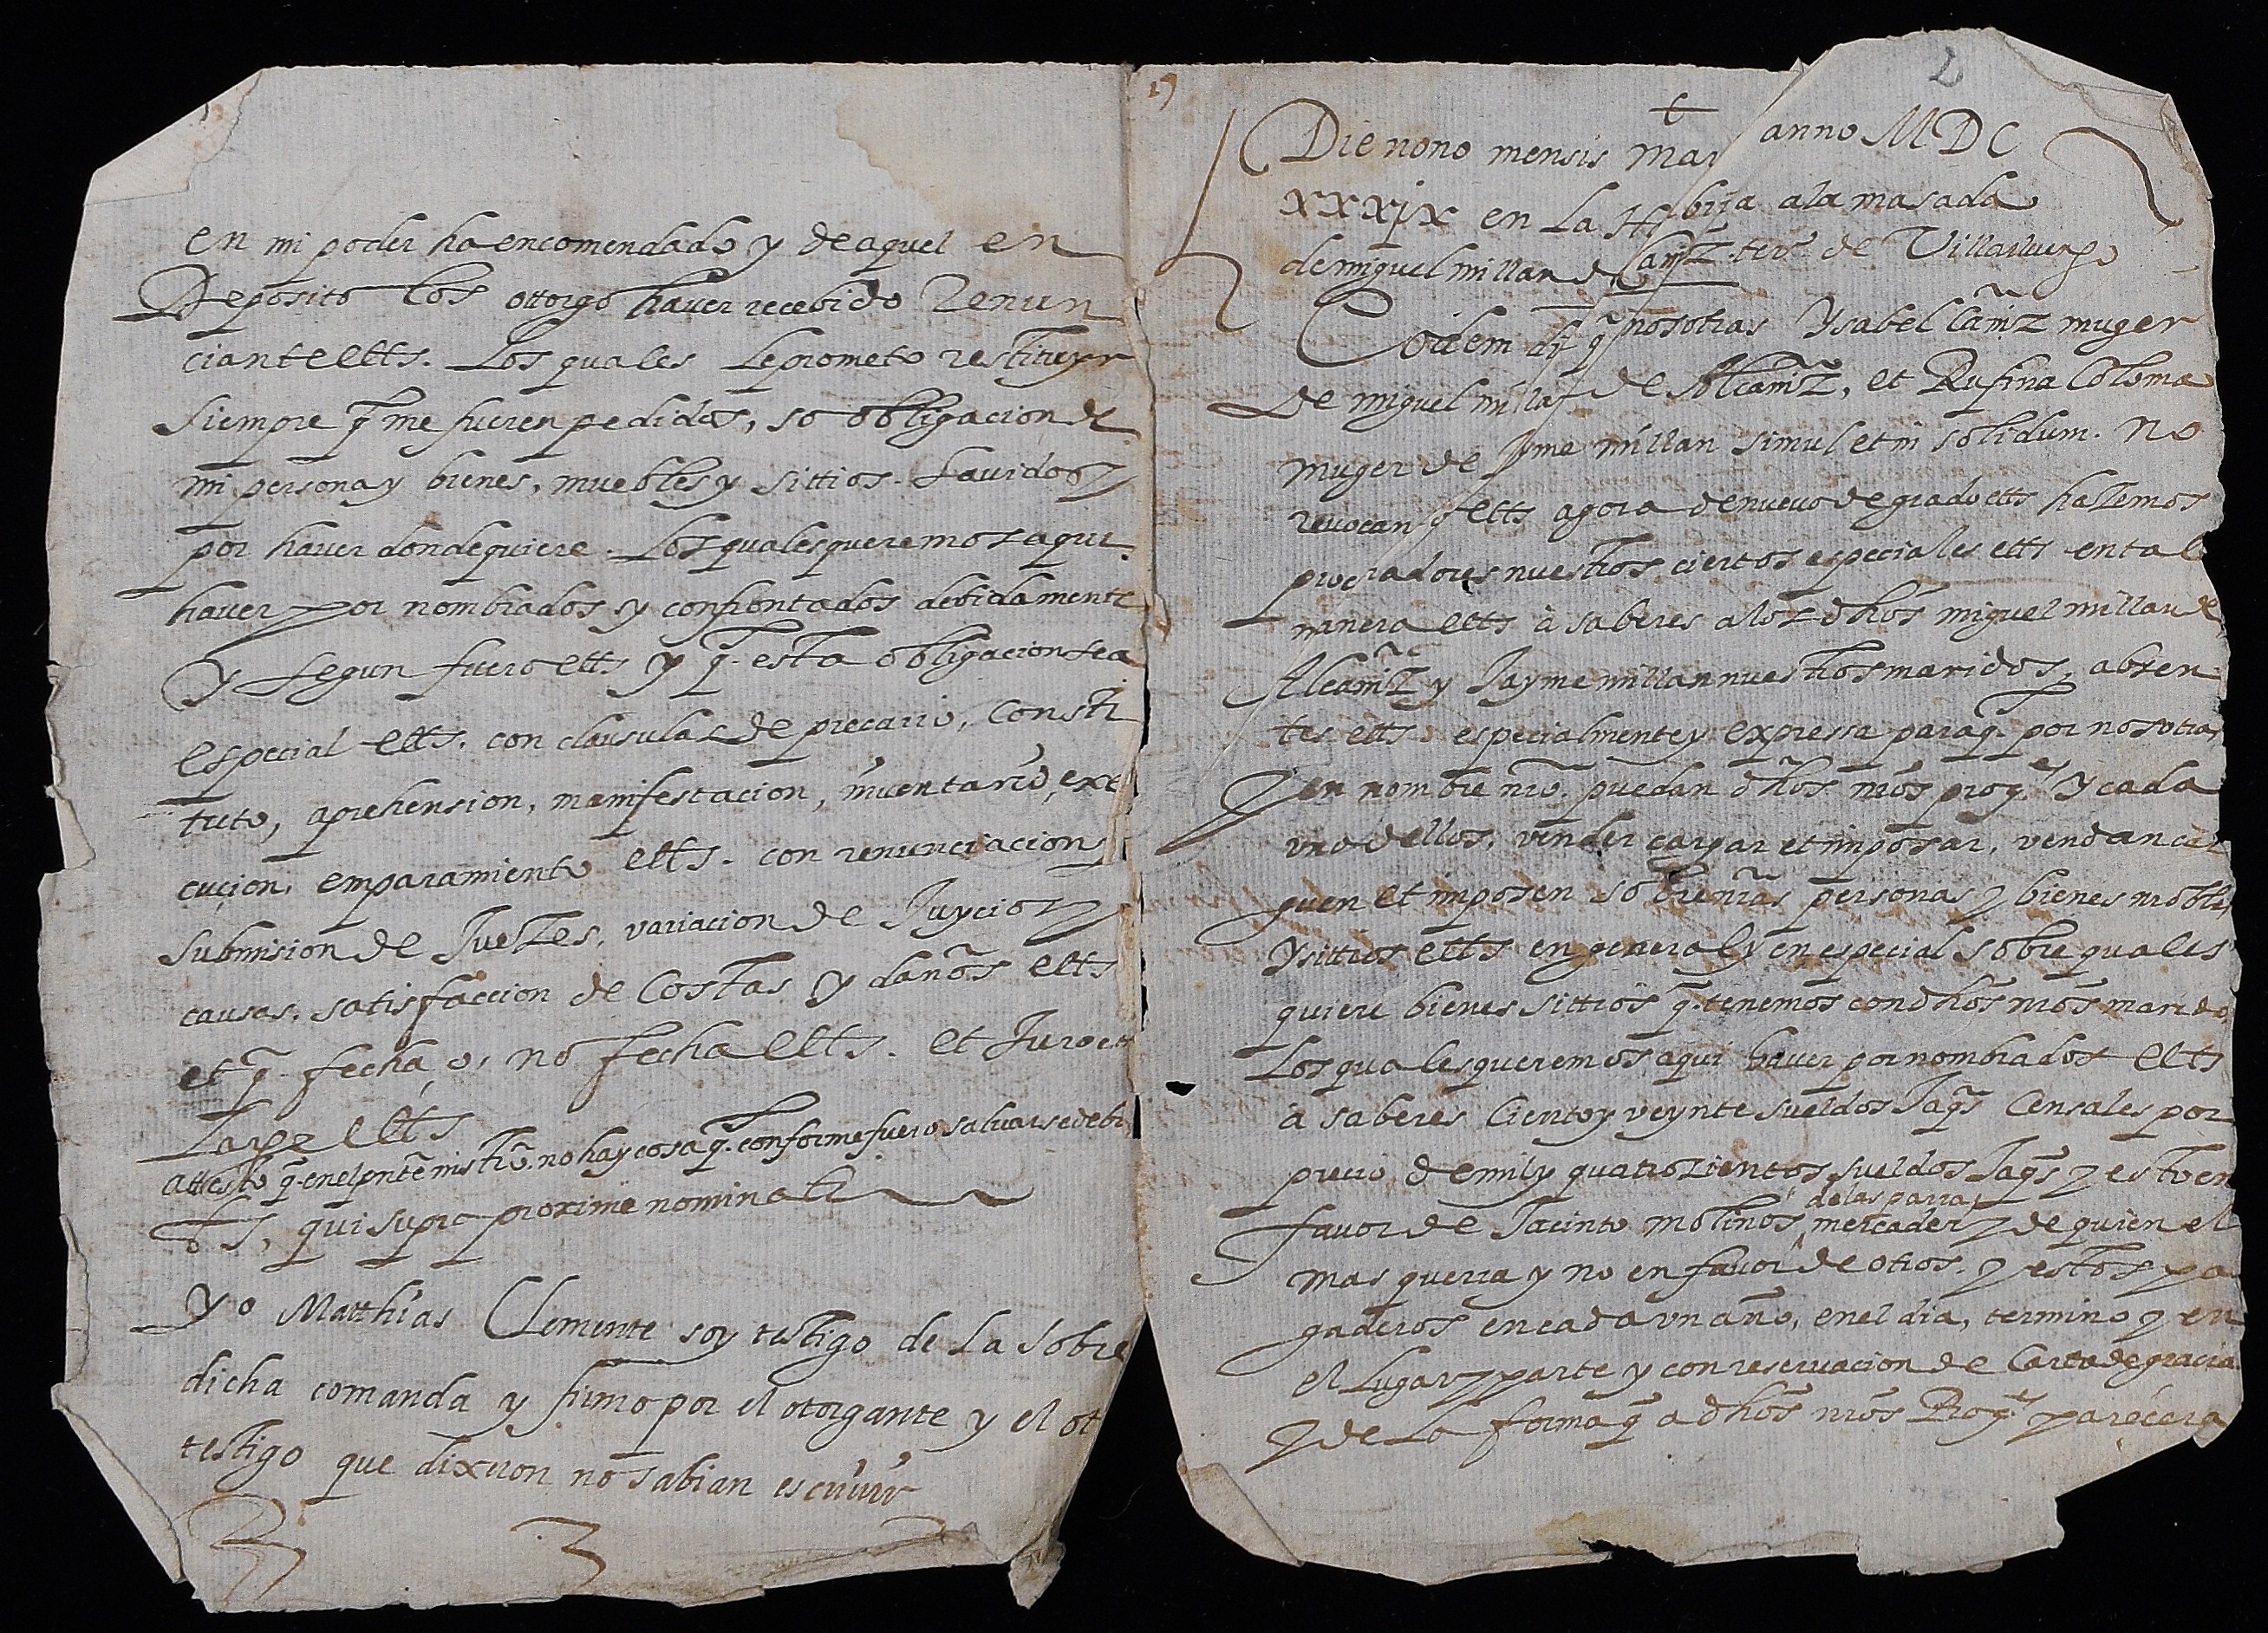 en mi poder ha encomendado y de aquel en
Deposito los ottorgo haver recebido Renun
ciante etts. Los quales le prometo restituyr
siempre q̃ me fueren pedidos, so obligacion de
mi persona y bienes, muebles y sittios. havidos y
por haver dondequiere. Los quales queremos aqui
haver por nombrados y confrontados debidamente
y segun fuero etts y q̃ esta obligacion sea
especial etts. con clausulas de precario, Consti
tuto, aprehension, manifestacion, inventario, exe
cucion, emparamiento etts. con renunciacion
submision de Juezes, variacion de Juycio y
causas, satisfaccion de Costas y daños etts
et q̃ fecha o, no fecha etts. et Juro
Large etts
attesto q̃ en el pnte instro. no hay cosa q̃ conforme fuero salvarse deba
Ts, qui supra proxime nominati
Yo Matthias Clemente soy testigo de la sobre
dicha comanda y firmo por el otorgante y el ot
testigo que dixeron no sabian escrivir
2
Die nono mensis Mar anno MDC
xxxix en La bija a la masada
de miguel millan de Cañiz. ter de Villarluengo
Eodem dj q̃ nosotras Ysabel Cañiz muger
de miguel millan de Alcañiz, et Rufina Coloma
muger de Jme millan simul et in solidum. No
revocan etts agora de nuevo de grado etts hazemos
procradores nuestros ciertos especiales etts en tal
manera etts à saber es a los dhos miguel millan de
Alcañiz y Jayme millan nuestros maridos, absen
tes etts. especialmente y expressa para q̃ por nosotras
y en nombre nro. puedan dhos nros proqes y cada
uno dellos, vender cargar et imposar, vendan car
guen et imposen sobre nras personas y bienes mobles
y sittios etts en general y en especial sobre quales
quiere bienes sittios q̃ tenemos con dhos nros marido
Los quales queremos aqui haver por nombrados etts
à saber es Ciento y veynte sueldos Jaqs Censales por
precio de mil y quatrozientos sueldos Jaqs y esto en
favor de Jacinto molinos de las parras mercader y de quien el
mas querra y no en favor de otros. y estos pa
gaderos en cada un año, en el dia, termino y en
el Lugar y parte y con reservacion de Carta de gracia
y de La forma q̃ a dhos nros Proqes parecera